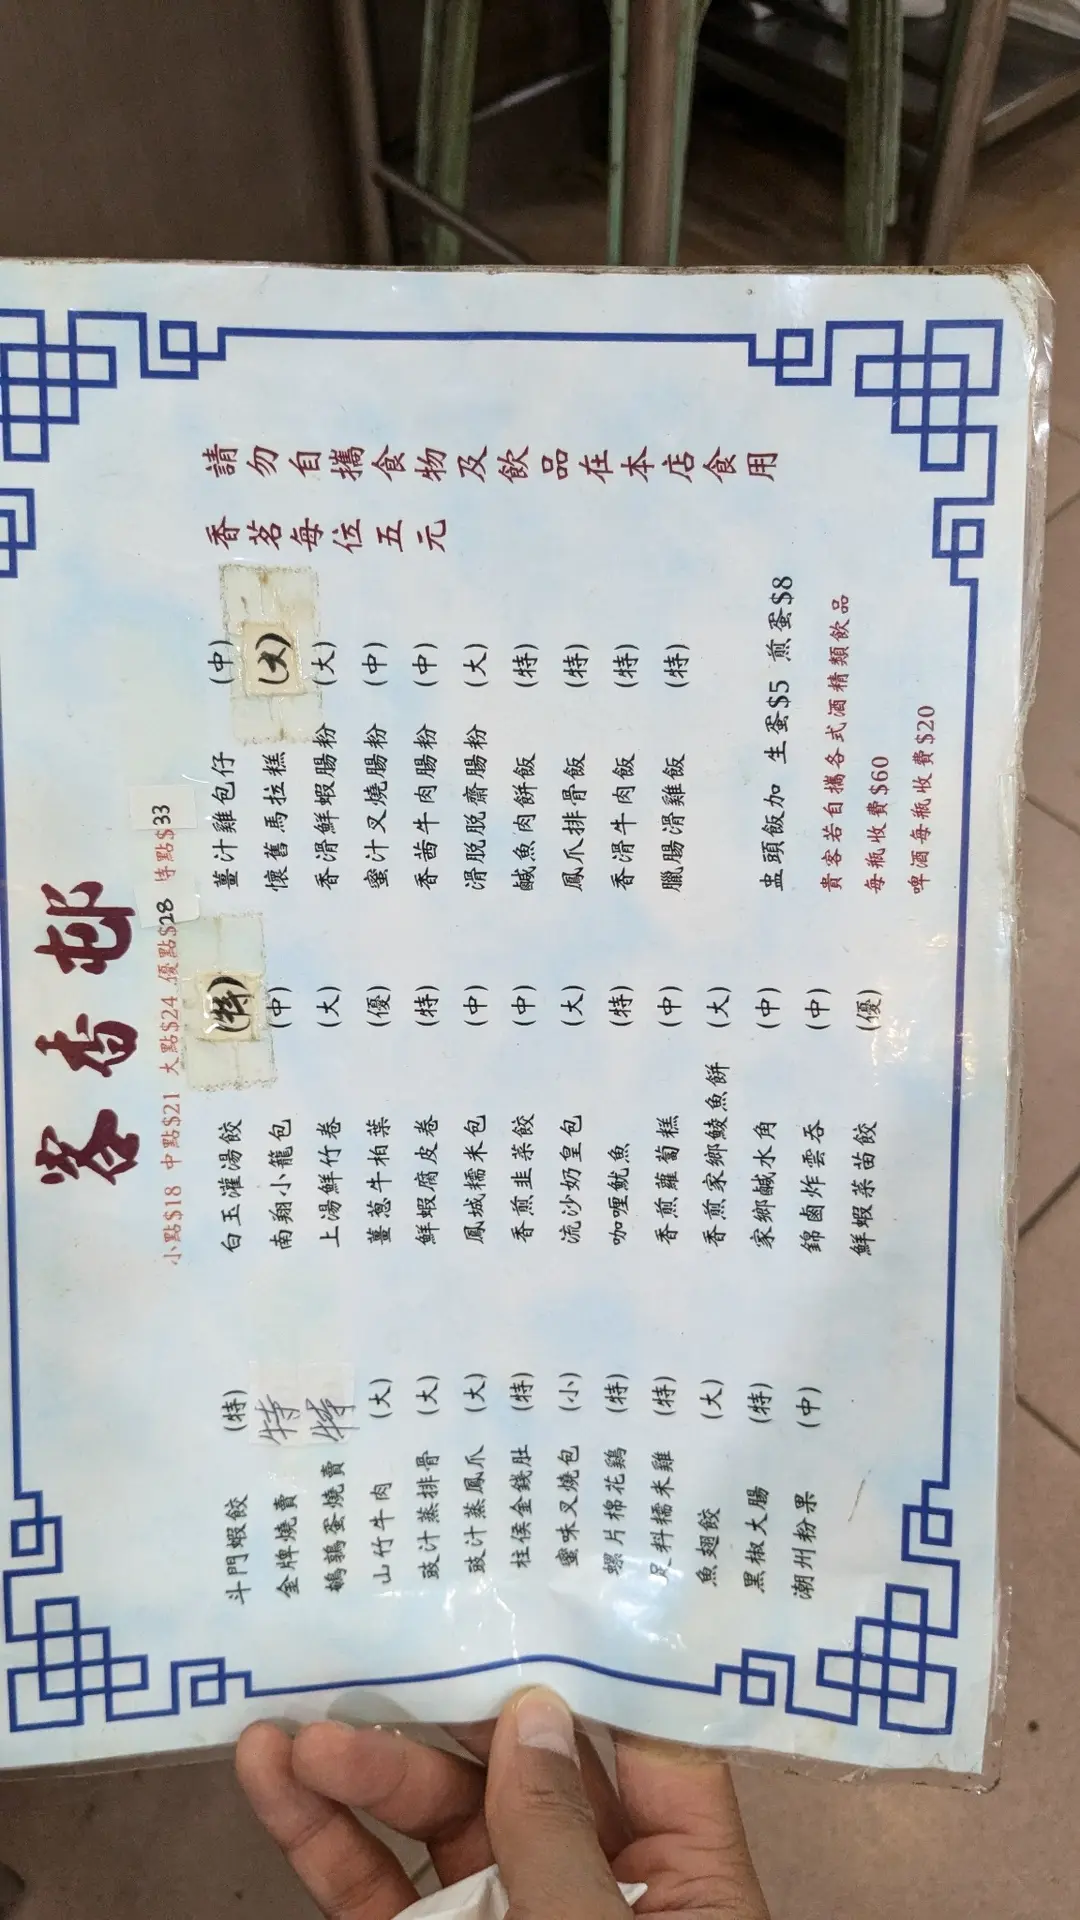 客香邨
小點$18 中點$21 大點$24 優點$28 特點$33
斗門蝦餃 (特)
金牌燒賣 特
鵪鶉蛋燒賣 特
山竹牛肉 (大)
豉汁蒸排骨 (大)
豉汁蒸鳳爪 (大)
柱侯金錢肚 (特)
蜜味叉燒包 (小)
螺片棉花鷄 (特)
足料糯米雞 (特)
魚翅餃 (大)
黑椒大腸 (特)
潮州粉果 (中)
白玉灌湯餃 (特)
南翔小籠包 (中)
上湯鮮竹卷 (大)
薑葱牛柏葉 (優)
鮮蝦腐皮卷 (特)
鳳城糯米包 (中)
香煎韭菜餃 (中)
流沙奶皇包 (大)
咖喱魷魚 (特)
香煎蘿蔔糕 (中)
香煎家鄉鯪魚餅 (大)
家鄉鹹水角 (中)
錦鹵炸雲吞 (中)
鮮蝦菜苗餃 (優)
薑汁雞包仔 (中)
懷舊馬拉糕 (大)
香滑鮮蝦腸粉 (大)
蜜汁叉燒腸粉 (中)
香茜牛肉腸粉 (中)
滑脫脫齋腸粉 (大)
鹹魚肉餅飯 (特)
鳳爪排骨飯 (特)
香滑牛肉飯 (特)
臘腸滑雞飯 (特)
盅頭飯加 生蛋$5 煎蛋$8
貴客若自攜各式酒精類飲品
每瓶收費$60
啤酒每瓶收費$20
香茗每位五元
請勿自攜食物及飲品在本店食用